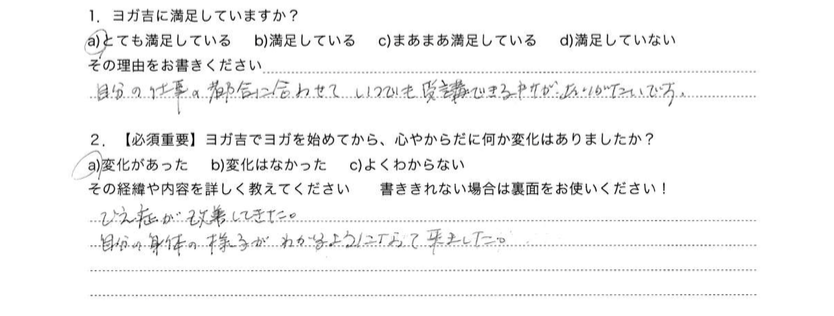 1．ヨガ吉に満足していますか？
a)とても満足している　b)満足している　c)まあまあ満足している　d)満足していない
その理由をお書きください
自分の仕事の都合に合わせて いつでも受講できる所が、ありがたいです。
2．【必須重要】ヨガ吉でヨガを始めてから、心やからだに何か変化はありましたか？
a)変化があった　b)変化はなかった　c)よくわからない
その経緯や内容を詳しく教えてください　　書ききれない場合は裏面をお使いください！
ひえ症が改善してきた。
自分の身体の様子が わかるようになって来ました。